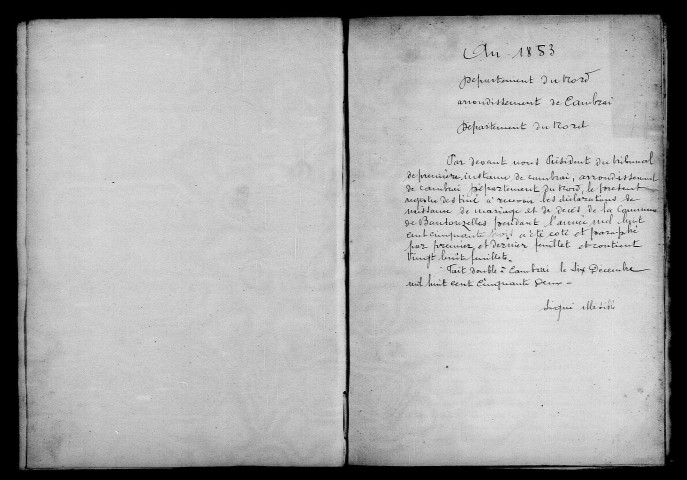 An 1853
Département du Nord
arrondissement de Cambrai
Département du Nord
Par devant nous Président du tribunal
de première instance de Cambrai, arrondissement
de Cambrai Département du Nord, le présent
registre destiné à recevoir les déclarations de
naissance de mariage et de decès de la Commune
de Banteuzelles pendant l'année mil huit
cent cinquante trois a été coté et paraphé
par premier et dernier feuillet et contient
vingt huit feuillets.
Fait double à Cambrai le Six Decembre
mil huit cent Cinquante Deux -
Signé